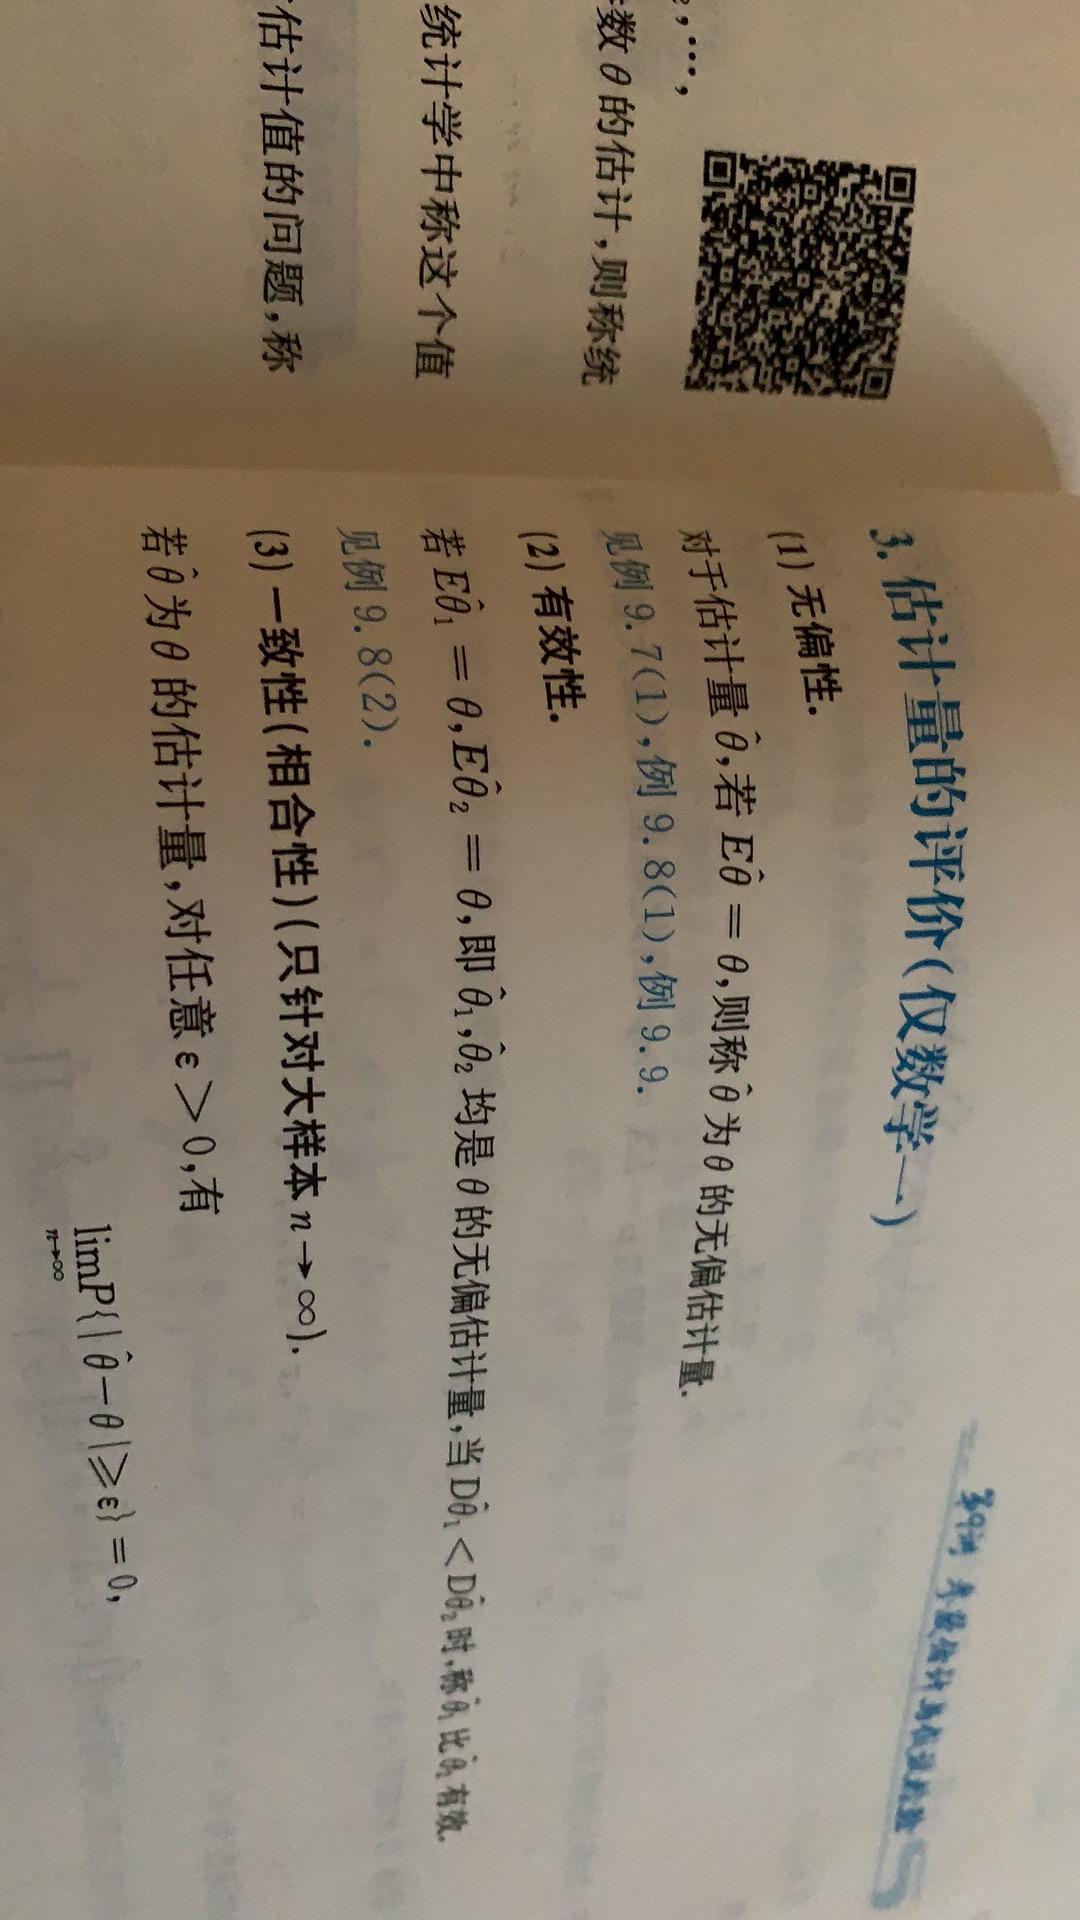 2,…,
数θ的估计,则称统
统计学中称这个值
估计值的问题,称
第9讲 参数估计与假设检验
3. 估计量的评价(仅数学一)
(1) 无偏性.
对于估计量θ̂,若Eθ̂=θ,则称θ̂为θ的无偏估计量.
见例9.7(1),例9.8(1),例9.9.
(2) 有效性.
若Eθ̂₁=θ,Eθ̂₂=θ,即θ̂₁,θ̂₂均是θ的无偏估计量,当Dθ̂₁<Dθ̂₂时,称θ̂₁比θ̂₂有效.
见例9.8(2).
(3) 一致性(相合性)(只针对大样本n→∞).
若θ̂为θ的估计量,对任意ε>0,有
lim P{|θ̂-θ|≥ε}=0,
n→∞